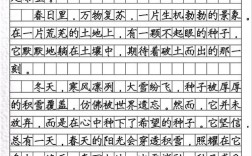 春日里，万物复苏，一片生机勃勃的景象。
在一片荒芜的土地上，有一颗不起眼的种子，
它默默地躺在土壤中，期待着破土而出的那一
刻。
冬天，寒风凛冽，大雪纷飞，种子被厚厚
的积雪覆盖，仿佛被世界遗忘。然而，它并未
放弃，而是在心中种下了希望的种子，它坚信
总有一天，春天的阳光会穿透积雪，照耀在它